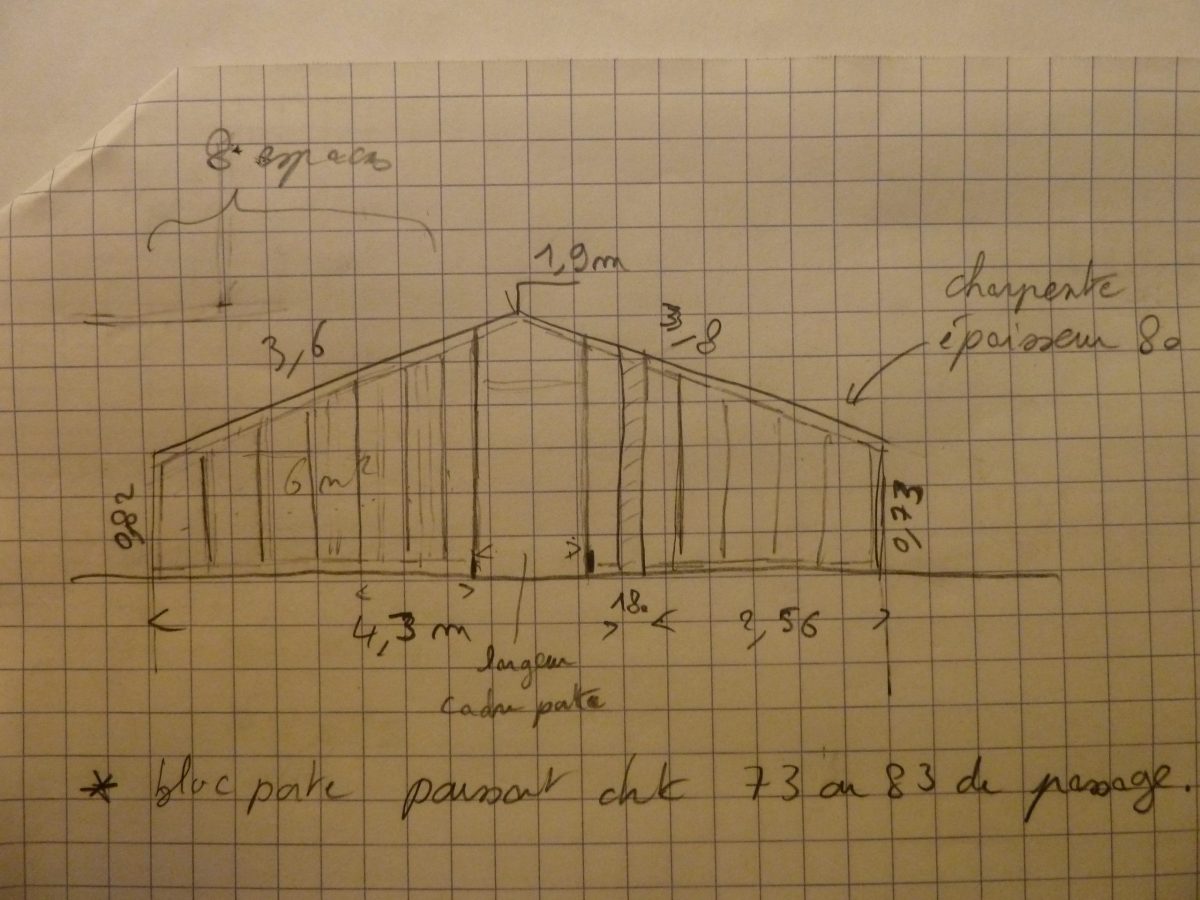 8 espaces
1,9m
charpente
épaisseur 80
3,6
3,8
6 m²
0,82
0,73
18
4,3 m
2,56
largeur
cadre porte
* bloc porte poussant 73 ou 83 de passage.